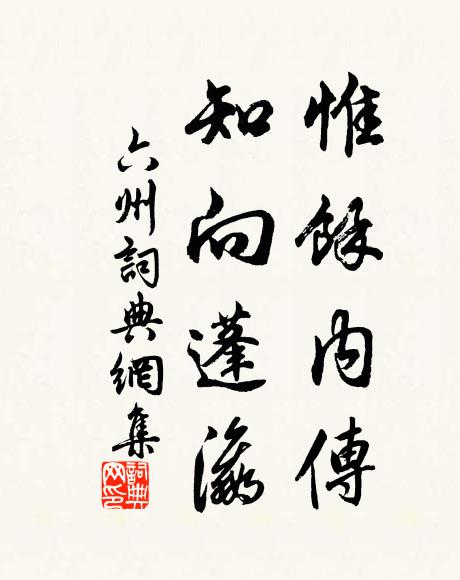 惟餘内傳
知向蓬瀛
六州詞典網集
詞典
网印